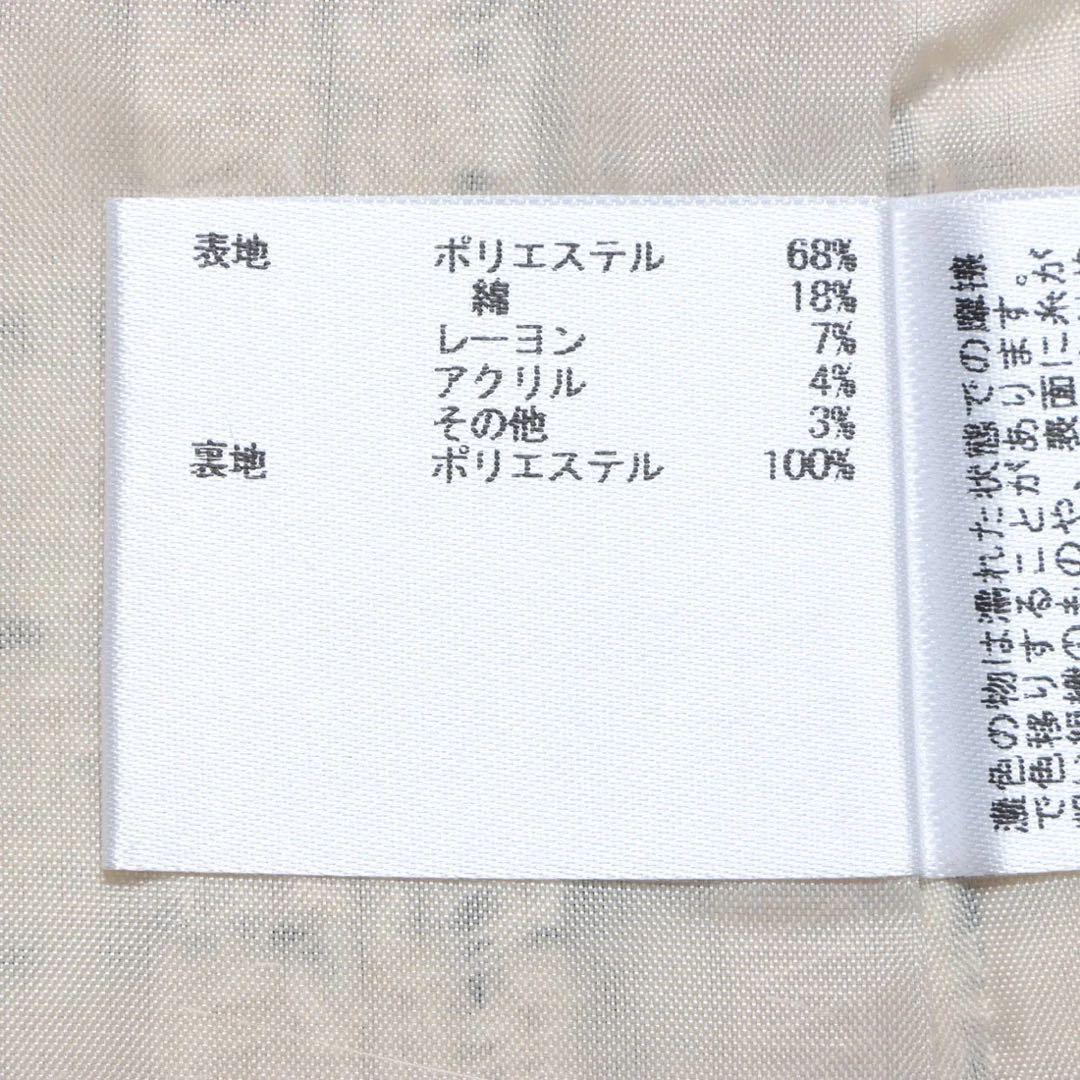 表地 ポリエステル 68%
綿 18%
レーヨン 7%
アクリル 4%
その他 3%
裏地 ポリエステル 100%
濃色の物は濡れた状態での摩擦
で色移りすることがあります。
のものや、表面に糸が